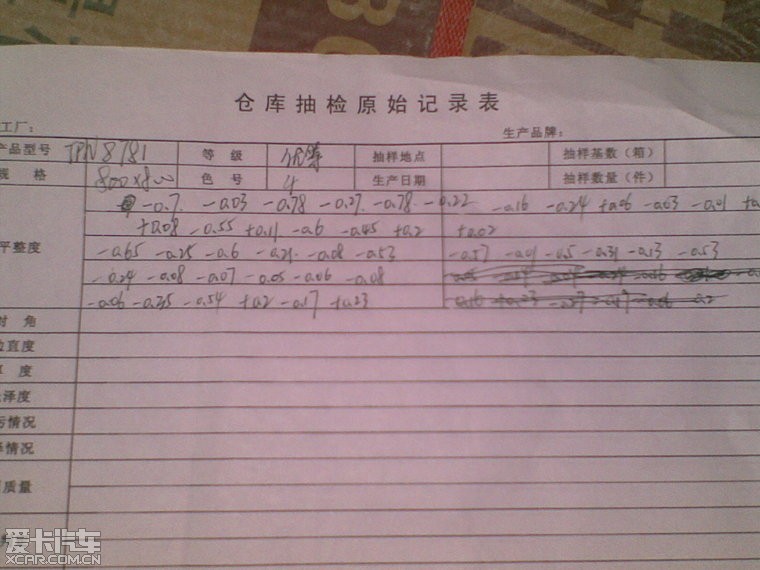 仓库抽检原始记录表
工厂： 生产品牌：
产品型号 TPN8781 等级 优等 抽样地点 抽样基数（箱）
规格 800×800 色号 4 生产日期 抽样数量（件）
-0.7 -0.03 -0.78 -0.27 -0.78 -0.22 -0.16 -0.24 +0.06 -0.03 -0.01
+0.08 -0.55 +0.11 -0.6 -0.45 +0.2 +0.02
平整度
-0.65 -0.25 -0.6 -0.21 -0.08 -0.53 -0.57 -0.01 -0.5 -0.31 -0.13 -0.53
-0.24 -0.08 -0.07 -0.05 -0.06 -0.08
-0.06 -0.35 -0.54 +0.2 -0.17 +0.23
对角
边直度
度
泽度
污情况
情况
质量
爱卡汽车
XCAR.COM.CN